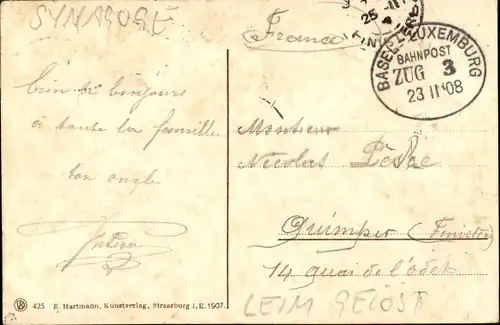 SYNAGOGE
France
3
25 11
BASEL LUXEMBURG
BAHNPOST
ZUG 3
23 11 08
bonjours
à toute la famille
ton oncle
Monsieur
Nicolas
Quimper (Finistère)
14 quai de l'odet
425 E. Hartmann, Kunstverlag, Strassburg i. E. 1907.
LEIM GELÖST